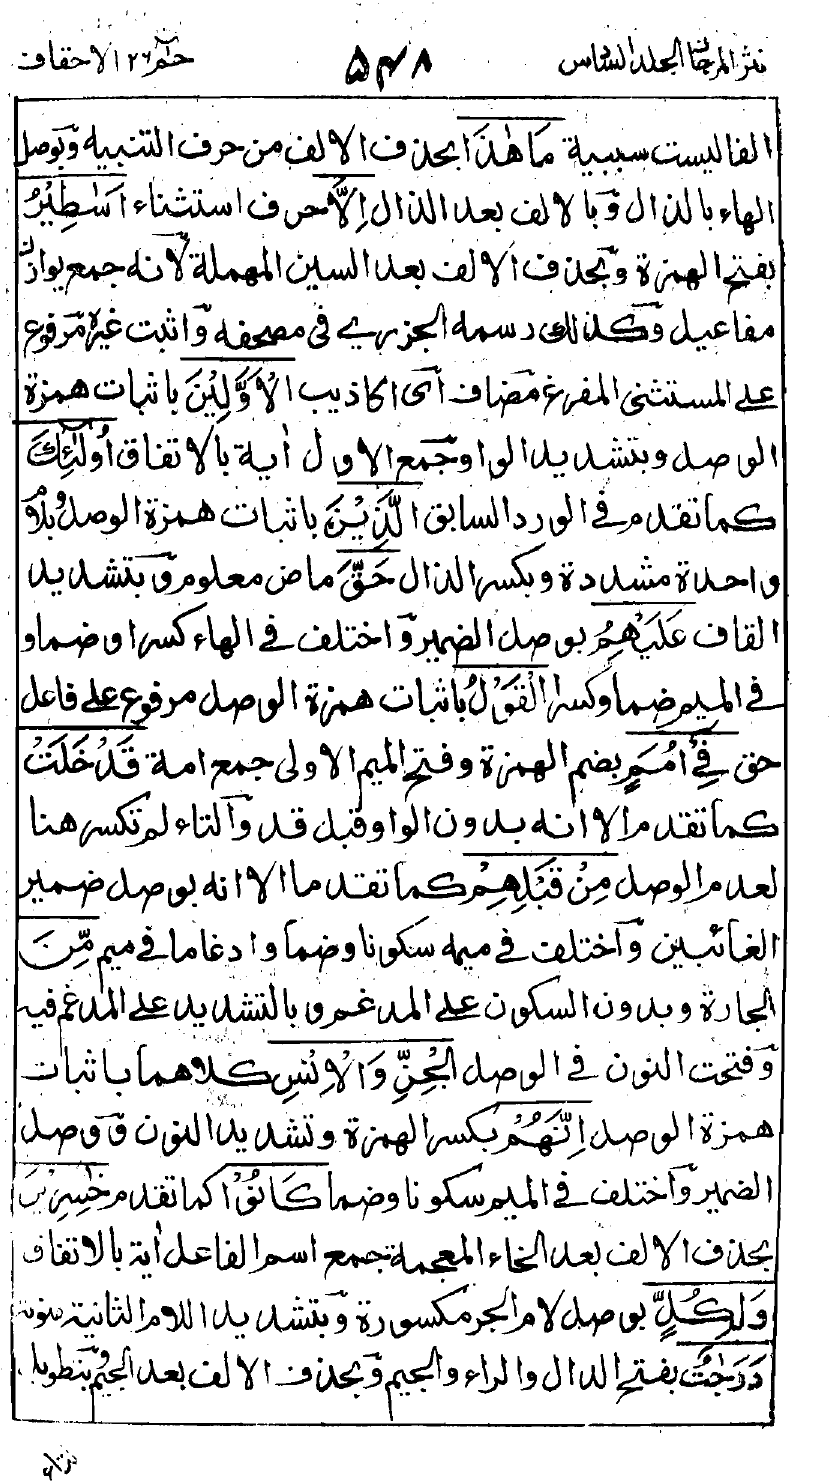 نثر المرجان الجلد السادس ۵۴۸ حٰمٓ ۲۶ الاحقاف
الفا ليست سببية مَا هٰذَا بحذف الالف من حرف التنبيه وبوصل
الهاء بالذال وبالالف بعد الذال اِلَّا حرف استثناء اَسَاطِيْرُ
بفتح الهمزة وبحذف الالف بعد السين المهملة لانه جمع يوازن
مفاعيل وكذلك رسمه الجزري في مصحفه واثبت غيره مرفوع
على المستثنى المفرغ مضاف اى اكاذيب الْاَوَّلِيْنَ باثبات همزة
الوصل وبتشديد الواو جمع الاول اٰية بالاتفاق اُولٰٓئِكَ
كما تقدم في الورد السابق الَّذِيْنَ باثبات همزة الوصل وبلام
واحدة مشددة وبكسر الذال حَقَّ ماض معلوم وبتشديد
القاف عَلَيْهِمُ بوصل الضمير واختلف في الهاء كسرا وضما و
في الميم ضما وكسرا الْقَوْلُ باثبات همزة الوصل مرفوع على فاعل
حق فِيْٓ اُمَمٍ بضم الهمزة وفتح الميم الاولى جمع امة قَدْ خَلَتْ
كما تقدم الا انه بدون الواو قبل قد والتاء لم تكسر هنا
لعدم الوصل مِنْ قَبْلِهِمْ كما تقدم الا انه بوصل ضمير
الغائبين واختلف في ميمه سكونا وضما وادغاما في ميم مِّنَ
الجارة وبدون السكون على المدغم وبالتشديد على المدغم فيه
وفتحت النون في الوصل الْجِنِّ وَالْاِنْسِ كلاهما باثبات
همزة الوصل اِنَّهُمْ بكسر الهمزة وتشديد النون ووصل
الضمير واختلف في الميم سكونا وضما كَانُوْا كما تقدم خٰسِرِيْنَ
بحذف الالف بعد الخاء المعجمة جمع اسم الفاعل اٰية بالاتفاق
وَلِكُلٍّ بوصل لام الجر مكسورة وبتشديد اللام الثانية منونة
دَرَجٰتٌ بفتح الدال والراء والجيم وبحذف الالف بعد الجيم